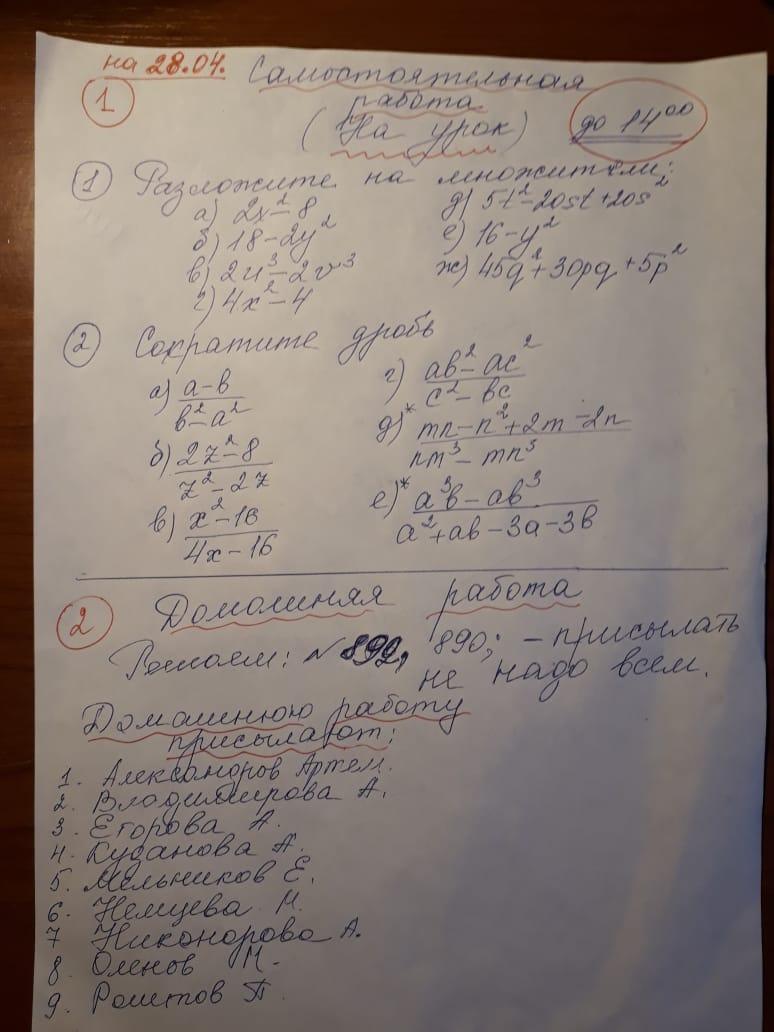 на 28.04. Самостоятельная
① работа
(На урок) до 14⁰⁰
① Разложите на множители:
а) 2x² - 8
б) 18 - 2y²
в) 2u³ - 2v³
г) 4x² - 4
д) 5t² - 20st + 20s²
е) 16 - y²
ж) 45q² + 30pq + 5p²
② Сократите дробь
а) (a-b)/(b²-a²)
б) (2z²-8)/(z²-2z)
в) (x²-16)/(4x-16)
г) (ab²-ac²)/(c²-bc)
д)* (mn-n²+2m-2n)/(nm³-mn³)
е)* (a³b-ab³)/(a²+ab-3a-3b)
② Домашняя работа
Решаем: № 892, 890; - присылать
не надо всем.
Домашнюю работу
присылают:
1. Александров Артем.
2. Владимирова А.
3. Егорова А.
4. Кусанова А.
5. Мельников Е.
6. Немцева Н.
7 Никонорова А.
8. Оленов М.
9. Решетов П.